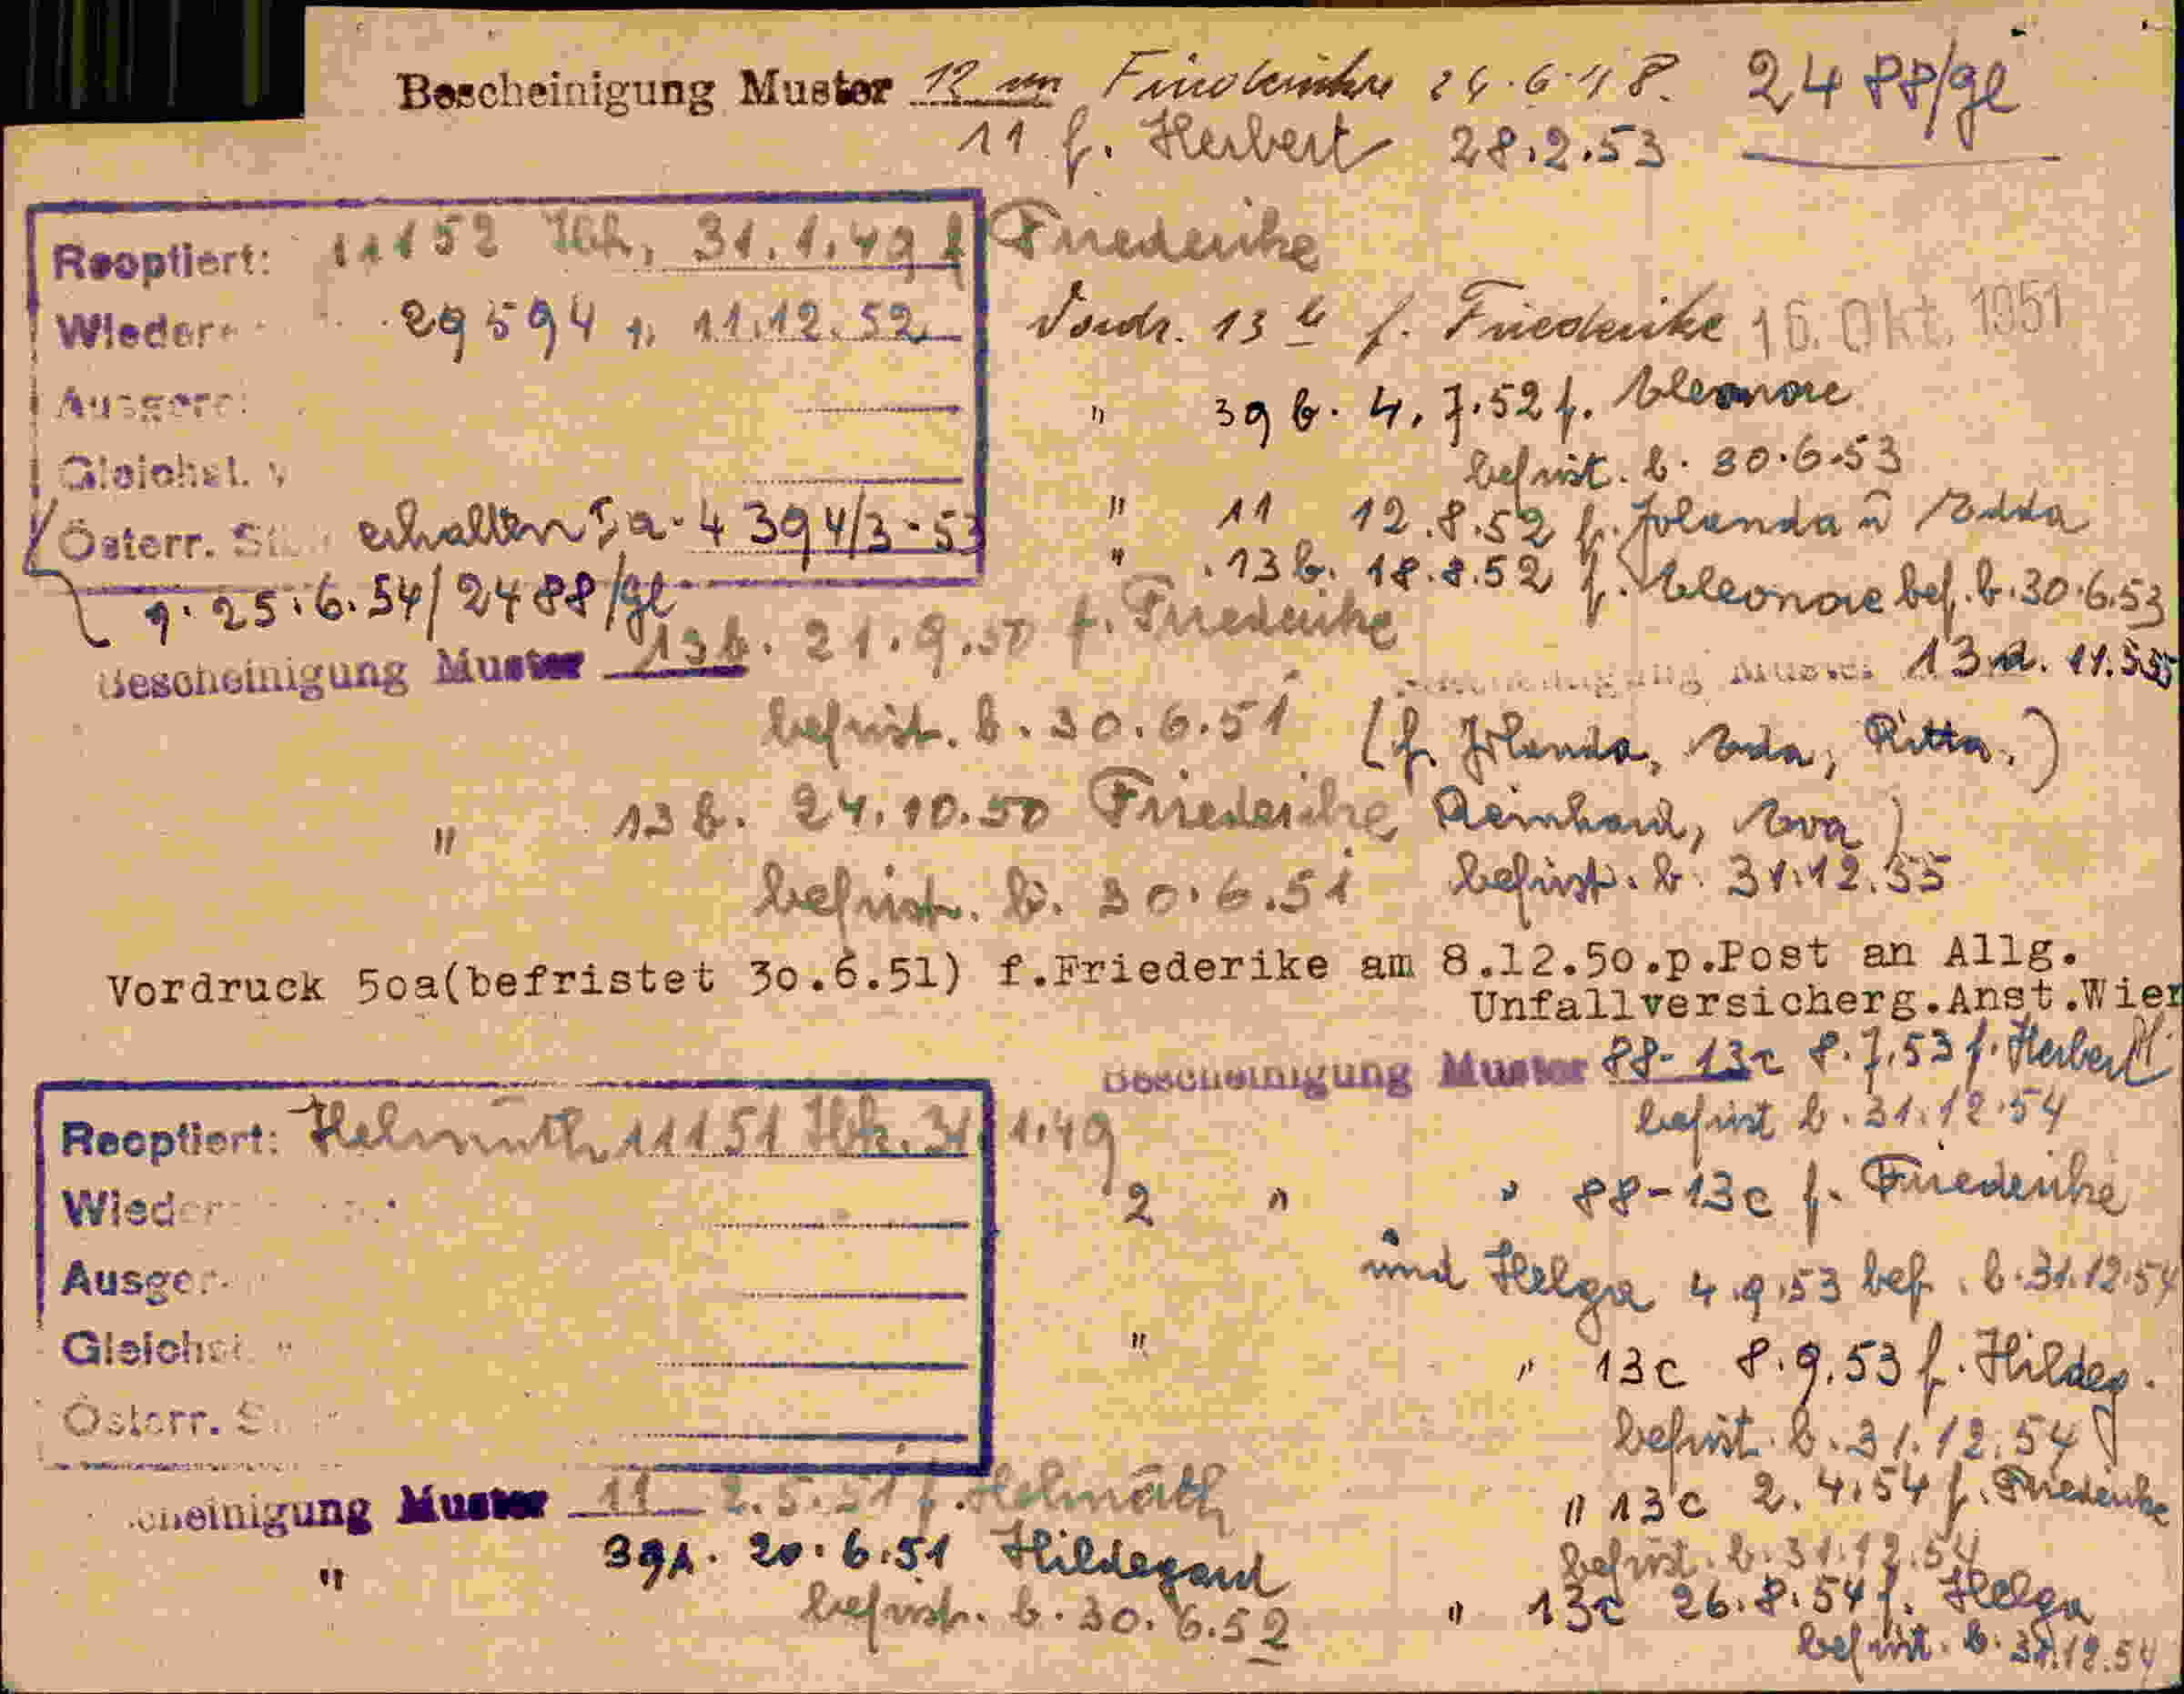 Bescheinigung Muster 12 Friederike 24.6.48. 2488/gl
11 f. Herbert 28.2.53
Reoptiert: 11152 Ibk, 31.1.49 f Friederike
Wieder 29594 11.12.52
Ausger
Gleichst. v
Österr. St. erhalten Ia-4394/3-53
25.6.54/2488/gl
Vordr. 13 b f. Friederike 16. Okt. 1951
" 39 b. 4.7.52 f. Eleonore
befrist. b. 30.6.53
" 11 12.8.52 f. Jolanda u Edda
" 13 b. 18.8.52 f. Eleonore bef. b. 30.6.53
Bescheinigung Muster 13b. 21.9.50 f. Friederike
befrist. b. 30.6.51
" 13 b. 24.10.50 Friederike
befrist. b. 30.6.51
Bescheinigung Muster 13a. 11.
(f. Jolanda, Eda, Ritta,)
Reinhard, Eva)
befrist. b. 31.12.55
Vordruck 50a(befristet 30.6.51) f.Friederike am 8.12.50.p.Post an Allg.
Unfallversicherg.Anst.Wien
Bescheinigung Muster 88-13c 8.7.53 f. Herbert
befrist b. 31.12.54
Reoptiert: Helmuth 11151 Ibk. 31.1.49
Wieder
Ausger
Gleichst
Österr. S
2 " " 88-13c f. Friederike
und Helga 4.9.53 bef. b. 31.12.54
" " 13c 8.9.53 f. Hildeg.
befrist. b. 31.12.54
" 13c 2.4.54 f. Friederike
befrist. b. 31.12.54
" 13c 26.8.54 f. Helga
befrist. b. 31.12.54
cheinigung Muster 11 2.5.51 f. Helmuth
" 39A. 20.6.51 Hildegard
befrist. b. 30.6.52